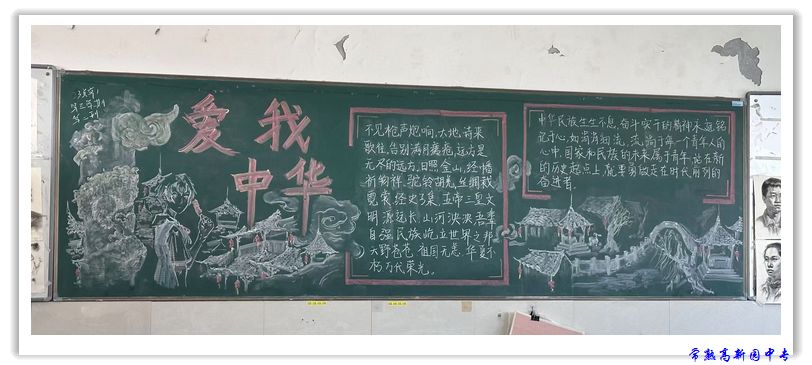 爱我
中华
不见枪声炮响,大地,诗来
歌往,告别满月疮疤,远方是
无尽的远方,日照金山,经幡
祈物祥,驼铃胡羌,丝绸栽
霓裳,经史了集,五帝三皇文
明源远长,山河泱泱吾辈
自强民族屹立世界之邦
天野苍苍,祖国无恙,华夏不
朽万代荣光。
中华民族生生不息,奋斗实干的精神永远铭
记于心,如涓涓细流,流淌于每一个青年人的
心中,国家和民族的未来属于青年,站在新
的历史起点上,就要勇敢走在时代前列的
奋进者。
常熟高新园中专